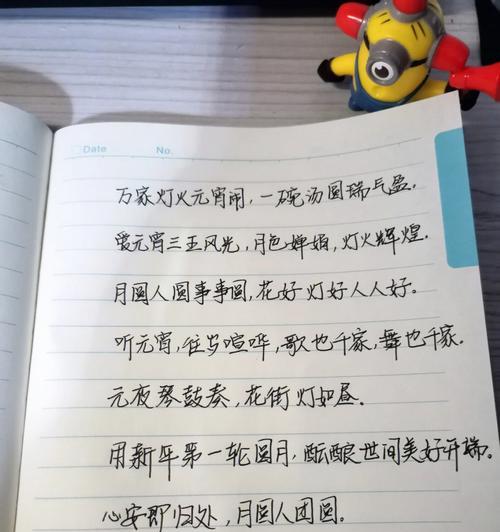 Date No.
万家灯火元宵闹，一碗汤圆瑞气盈.
爱元宵三五风光，月色婵娟，灯火辉煌.
月圆人圆事事圆，花好灯好人人好。
听元宵，往岁喧哗，歌也千家，舞也千家.
元夜琴鼓奏，花街灯如昼.
用新年第一轮圆月，酝酿世间美好开端。
心安即归处，月圆人团圆。